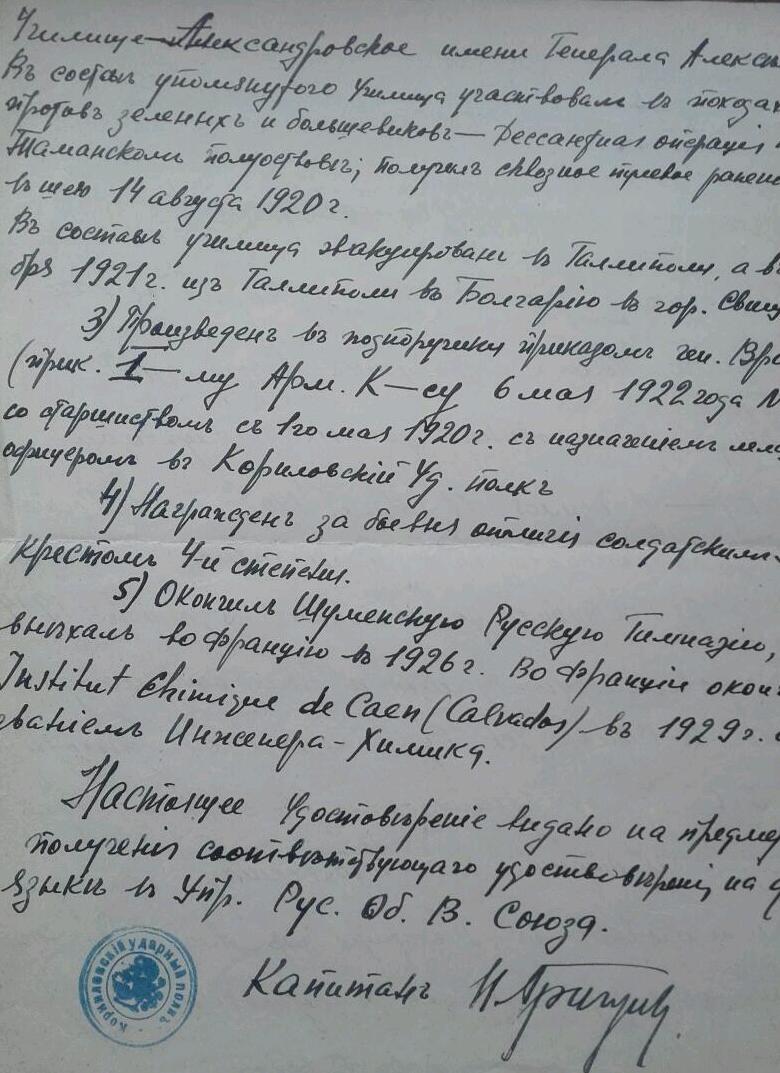 Училище Александровское имени Генерала Алекс
Въ составѣ упомянутого Училища участвовалъ въ поход
противъ зеленыхъ и большевиковъ — Дессантная операція
Таманскомъ полуостровѣ; получилъ сквозное пулевое ранен
въ шею 14 августа 1920 г.
Въ составѣ училища эвакуированъ въ Галлиполи, а въ
бря 1921 г. изъ Галлиполи въ Болгарію въ гор. Свищ
3) Произведенъ въ подпоручики приказомъ ген. Вра
(прик. I — му Арм. К — су 6 мая 1922 года №
со старшинствомъ съ 1го мая 1920 г. съ назначеніемъ мл
офицеромъ въ Корниловскій Уд. полкъ
4) Награжденъ за боевыя отличія солдатскимъ
крестомъ 4-й степени.
5) Окончилъ Шуменскую Русскую Гимназію,
выѣхалъ во Францію въ 1926 г. Во Франціи окон
Institut Chimique de Caen (Calvados) въ 1929 г. с
званіемъ Инженера-Химика.
Настоящее Удостовѣреніе выдано на предме
полученія соотвѣтствующаго удостовѣренія на ф
языкѣ въ Упр. Рус. Об. В. Союза.
Капитанъ
Корниловскій ударный полкъ